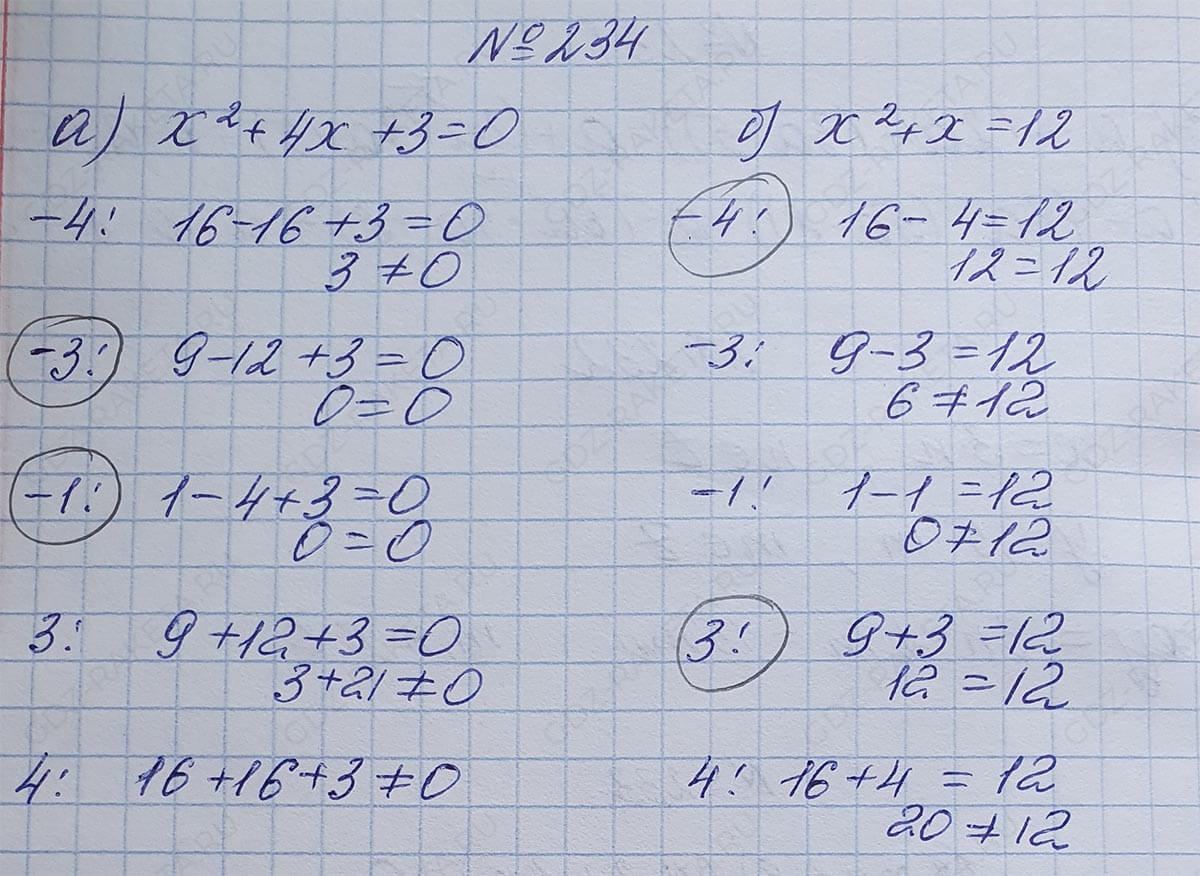 №234
а) x²+4x+3=0
-4: 16-16+3=0
3≠0
-3: 9-12+3=0
0=0
-1: 1-4+3=0
0=0
3: 9+12+3=0
3+21≠0
4: 16+16+3≠0
б) x²+x=12
-4: 16-4=12
12=12
-3: 9-3=12
6≠12
-1: 1-1=12
0≠12
3: 9+3=12
12=12
4: 16+4=12
20≠12